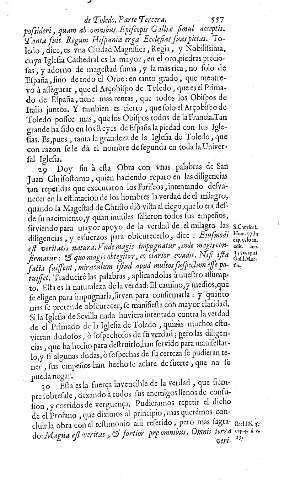 de Toledo. Parte Tercera. 557
possideri, quam ab omnibus Episcopis Galliæ simul acceptis.
Tanta fuit Regum Hispania erga Ecclesias suas pietas. To-
ledo, dize, es vna Ciudad Magnifica, Regia, y Nobilissima,
cuya Iglesia Cathedral es la mayor, en el oro, piedras precio-
sas, y adorno de magestad suma, y la mas rica, no solo de
España, sino de todo el Orbe: en tanto grado, que me atre-
vo à assegurar, que el Arçobispo de Toledo, que es el Prima-
do de España, tiene mas rentas, que todos los Obispos de
Italia juntos. Y tambien es cierto, que solo el Arçobispo de
Toledo possee mas, que los Obispos todos de la Francia. Tan
grande ha sido en los Reyes de España la piedad con sus Igle-
sias. Es, pues, tanta la grandeza de la Iglesia de Toledo, que
con razon se le dà el nombre de segunda en toda la Univer-
sal Iglesia.
29 Doy fin à esta Obra con vnas palabras de San
Juan Chrisostomo, quien haciendo reparo en las diligencias
tan repetidas que executaron los Fariseos, intentando desva-
necer en la estimacion de los hombres la verdad del milagro,
quando la Magestad de Christo diò vista al ciego, que lo era des-
de su nacimiento, y quan inutiles salieron todos sus empeños,
sirviendo para mayor apoyo de la verdad del milagro las
diligencias, y esfuerzos para obscurecerlo, dice: Eiusmodi
est veritatis natura. Vnde magis impugnatur, inde magis con-
firmatur: & quo magis obtegitur, eo clarior evadit. Nisi esta
facta fuissent, miraculum istud apud multos suspectum esse po-
tuisset. Traducirè las palabras, aplicandolas à nuestro assump-
to. Esta es la naturaleza de la verdad: El camino, y medios, que
se eligen para impugnarla, sirven para confirmarla: y quanto
mas se pretende obscurecer, se manifiesta con mayor claridad.
Si la Iglesia de Sevilla nada huviera intentado contra la verdad
de el Primado de la Iglesia de Toledo, quizàs muchos estu-
vieran dudosos, ò sospechosos de su verdad; pero las diligen-
cias, que ha hecho para destruirlo, han servido para manifestar-
lo, y si algunas dudas, ò sospechas de su certeza se pudieran te-
ner, sus empeños han hecho se aclare de suerte, que no se
pueda negar.
30 Esta es la fuerça invencible de la verdad, que siem-
pre sobresale, dexando à todos sus enemigos llenos de confu-
sion, y corridos de verguença. Pudieramos repetir el dicho
de el Profano, que dixímos al principio, mas queremos con-
cluir la obra con el testimonio alli referido, pero mas sagra-
do: Magna est veritas, & fortior præ omnibus. Omnis terra
veri-